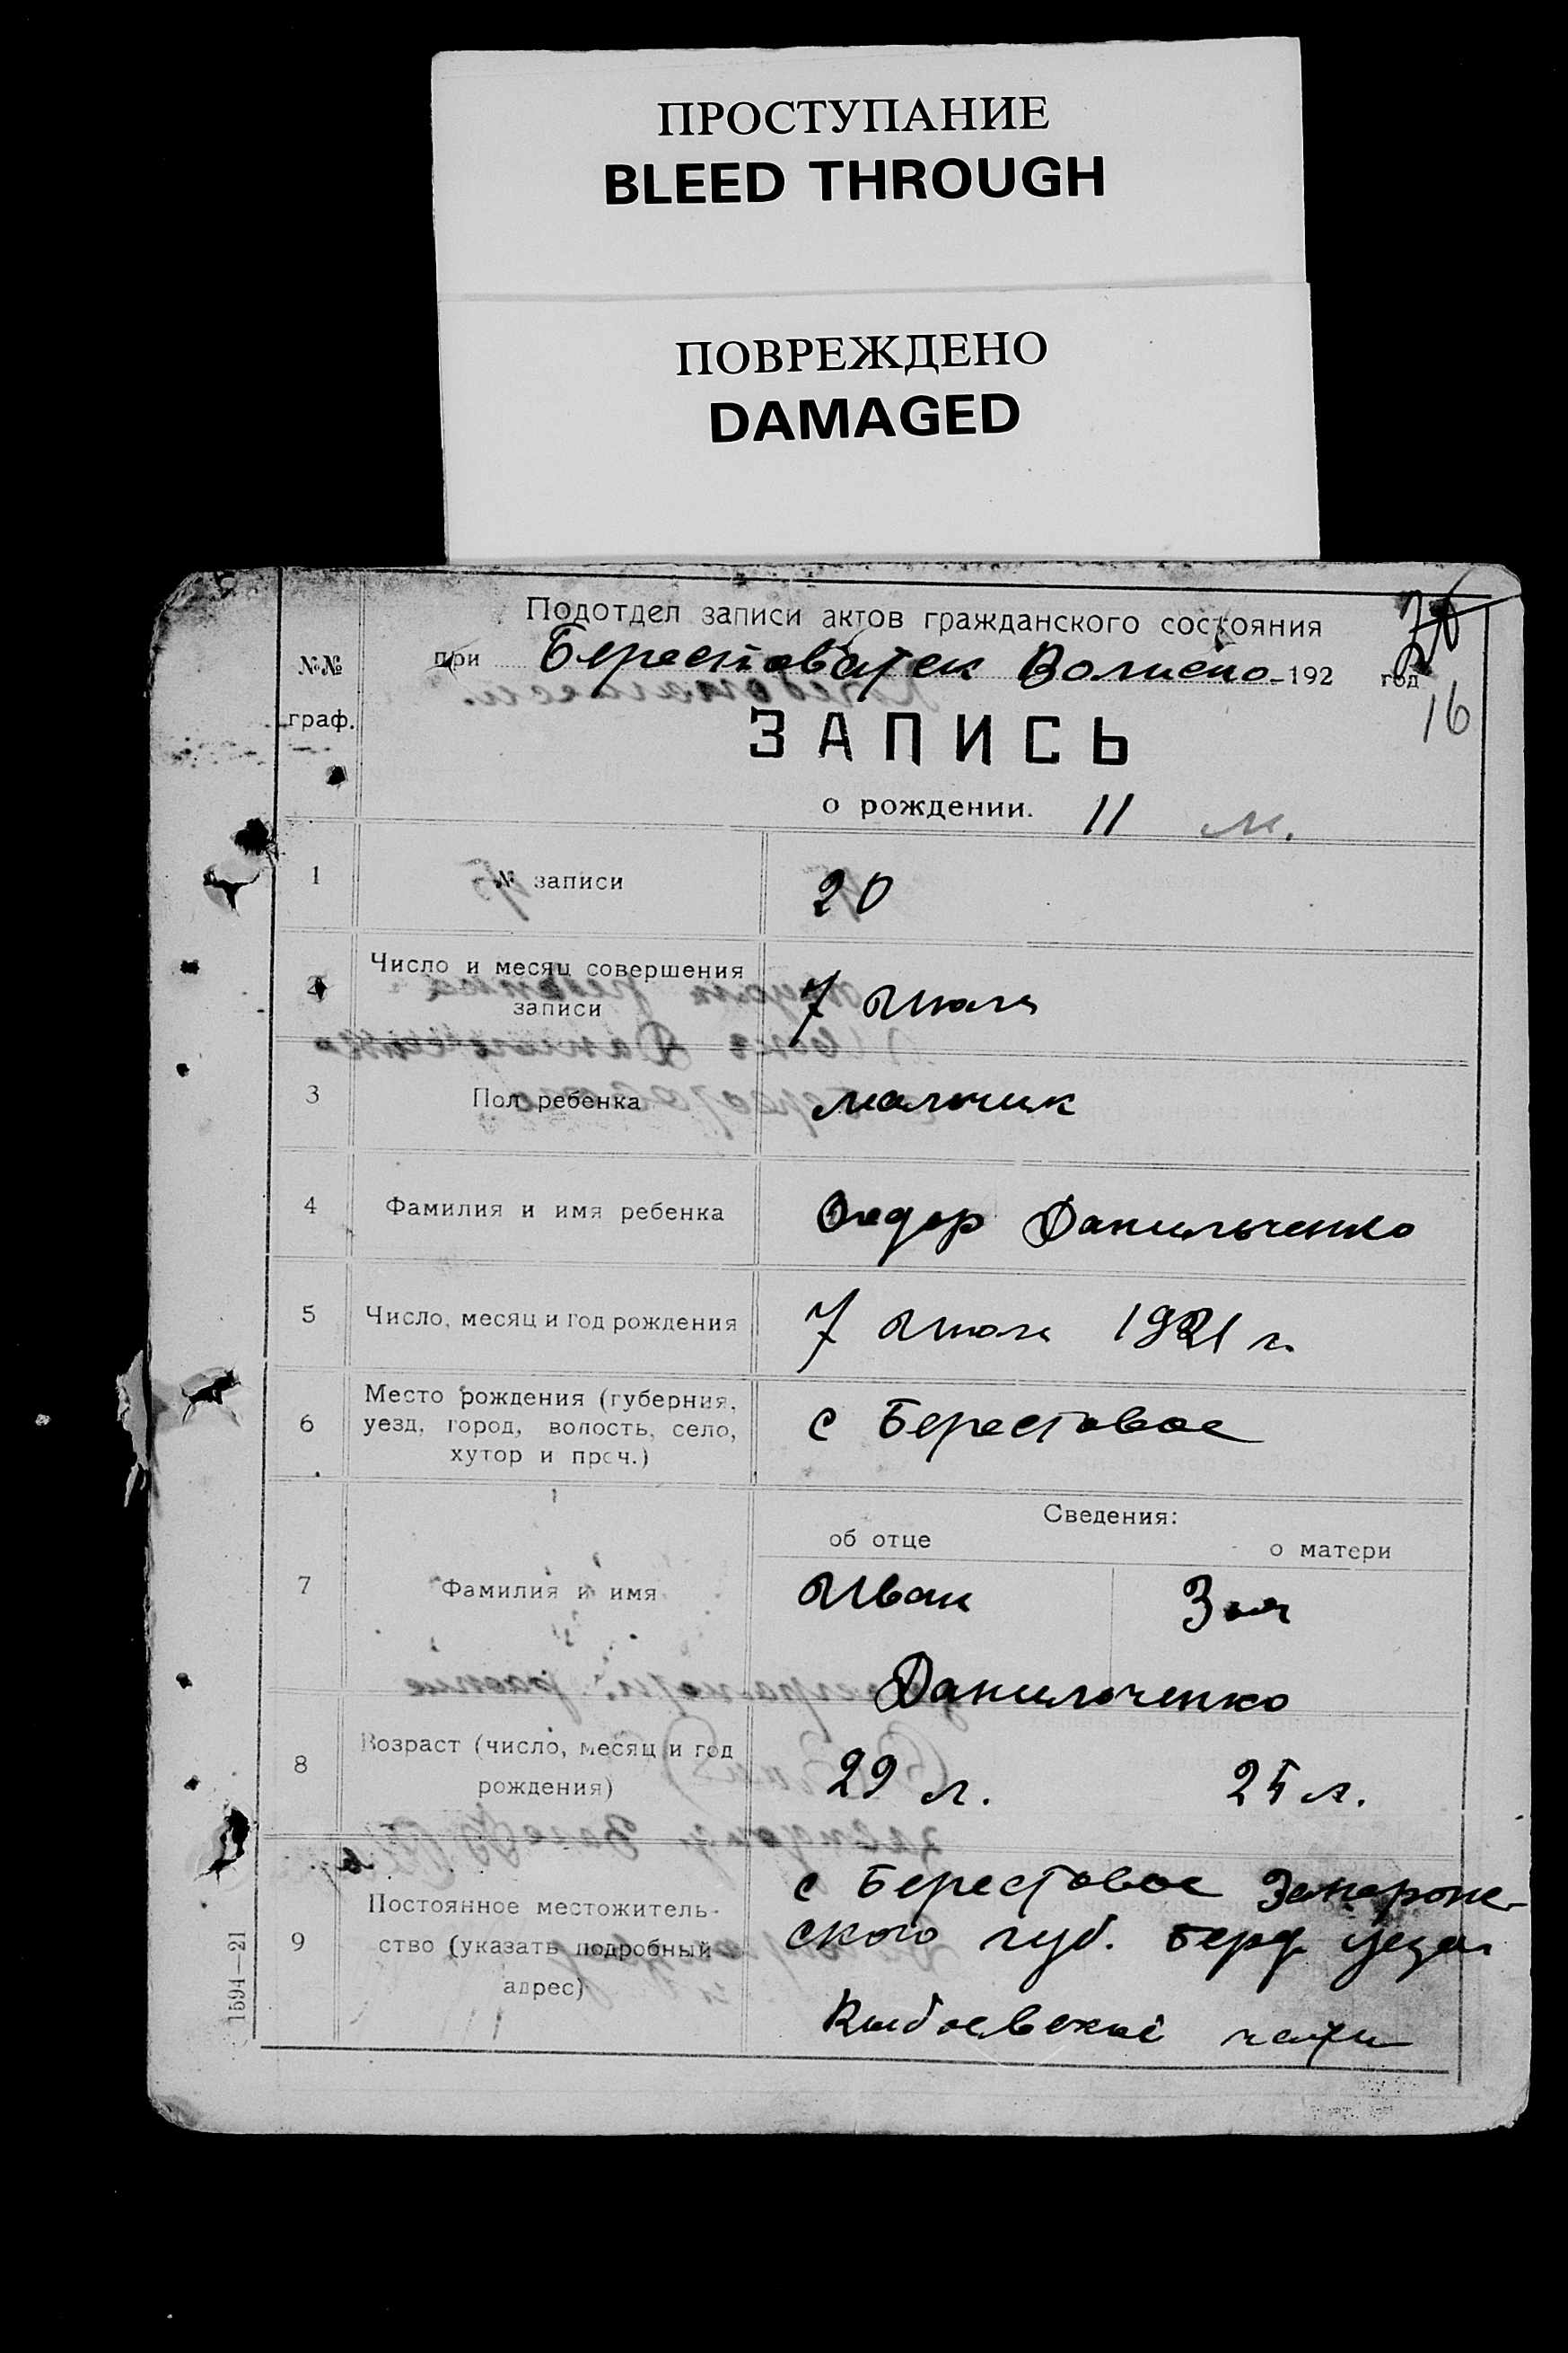 ПРОСТУПАНИЕ
BLEED THROUGH
ПОВРЕЖДЕНО
DAMAGED
Подотдел записи актов гражданского состояния
при Берестоватск 192 год
16
№№ граф.
ЗАПИСЬ
о рождении. 11 м.
1 № записи 20
2 Число и месяц совершения
записи 7 Июля
3 Пол ребенка мальчик
4 Фамилия и имя ребенка Федор Данильченко
5 Число, месяц и год рождения 7 Июля 1921 г.
6 Место рождения (губерния,
уезд, город, волость, село,
хутор и проч.) с Берестовое
Сведения:
об отце о матери
7 Фамилия и имя Иван Зоя
Данильченко
8 Возраст (число, месяц и год
рождения) 29 л. 25 л.
9 Постоянное местожитель-
ство (указать подробный
адрес)
с Берестовое
ского губ. Берд уезда
1594—21